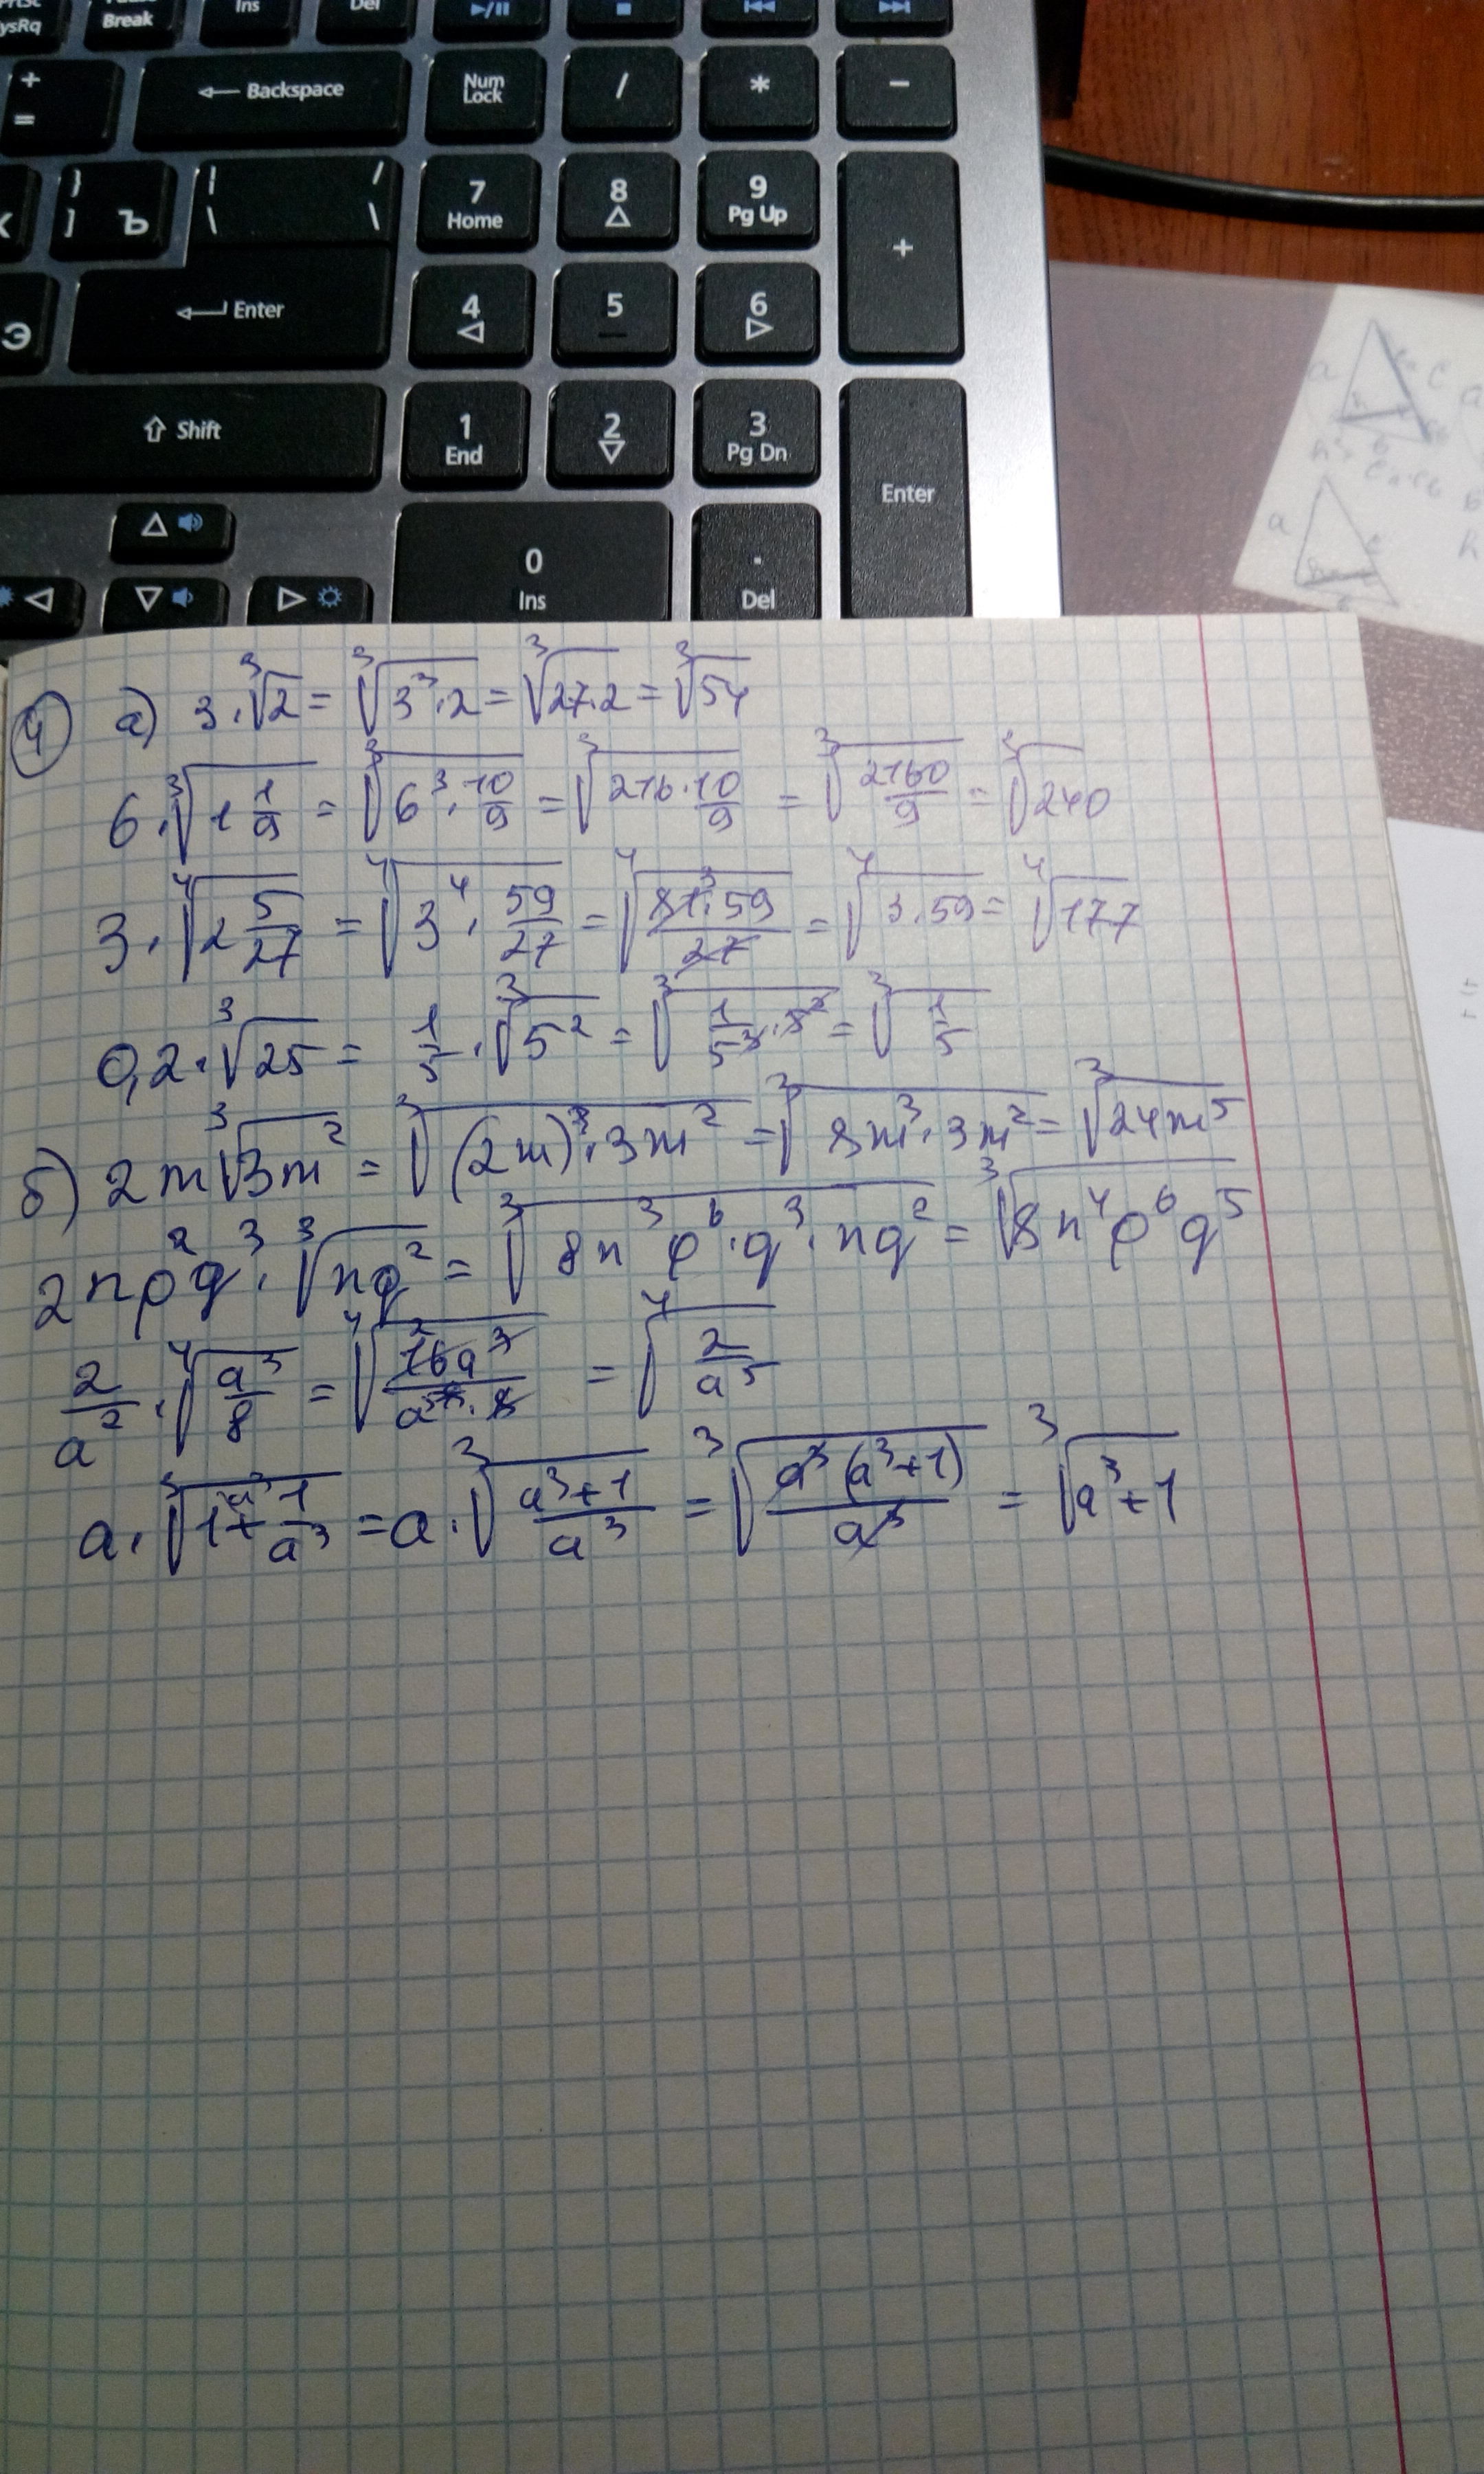 PrtSc
SysRq
Pause
Break
Ins
Del
+
=
← Backspace
Num
Lock
/
*
−
}
]
Ъ
|
\
/
\
7
Home
8
9
Pg Up
+
Э
Enter
4
5
6
⇧ Shift
1
End
2
3
Pg Dn
Enter
0
Ins
.
Del
④ а) 3·∛2 = ∛(3³·2) = ∛(27·2) = ∛54
6·∛(1 1/9) = ∛(6³·10/9) = ∛(216·10/9) = ∛(2160/9) = ∛240
3·∜(2 5/27) = ∜(3⁴·59/27) = ∜(81³·59/27) = ∜(3·59) = ∜177
0,2·∛25 = 1/5·∛5² = ∛(1/5³·5²) = ∛(1/5)
б) 2m∛(3m²) = ∛((2m)³·3m²) = ∛(8m³·3m²) = ∛(24m⁵)
2np²q·∛(nq²) = ∛(8n³p⁶·q³·nq²) = ∛(8n⁴p⁶q⁵)
2/a²·∜(a³/8) = ∜(16a³/(a⁸·8)) = ∜(2/a⁵)
a·∛(1+1/a³) = a·∛((a³+1)/a³) = ∛(a³(a³+1)/a³) = ∛(a³+1)